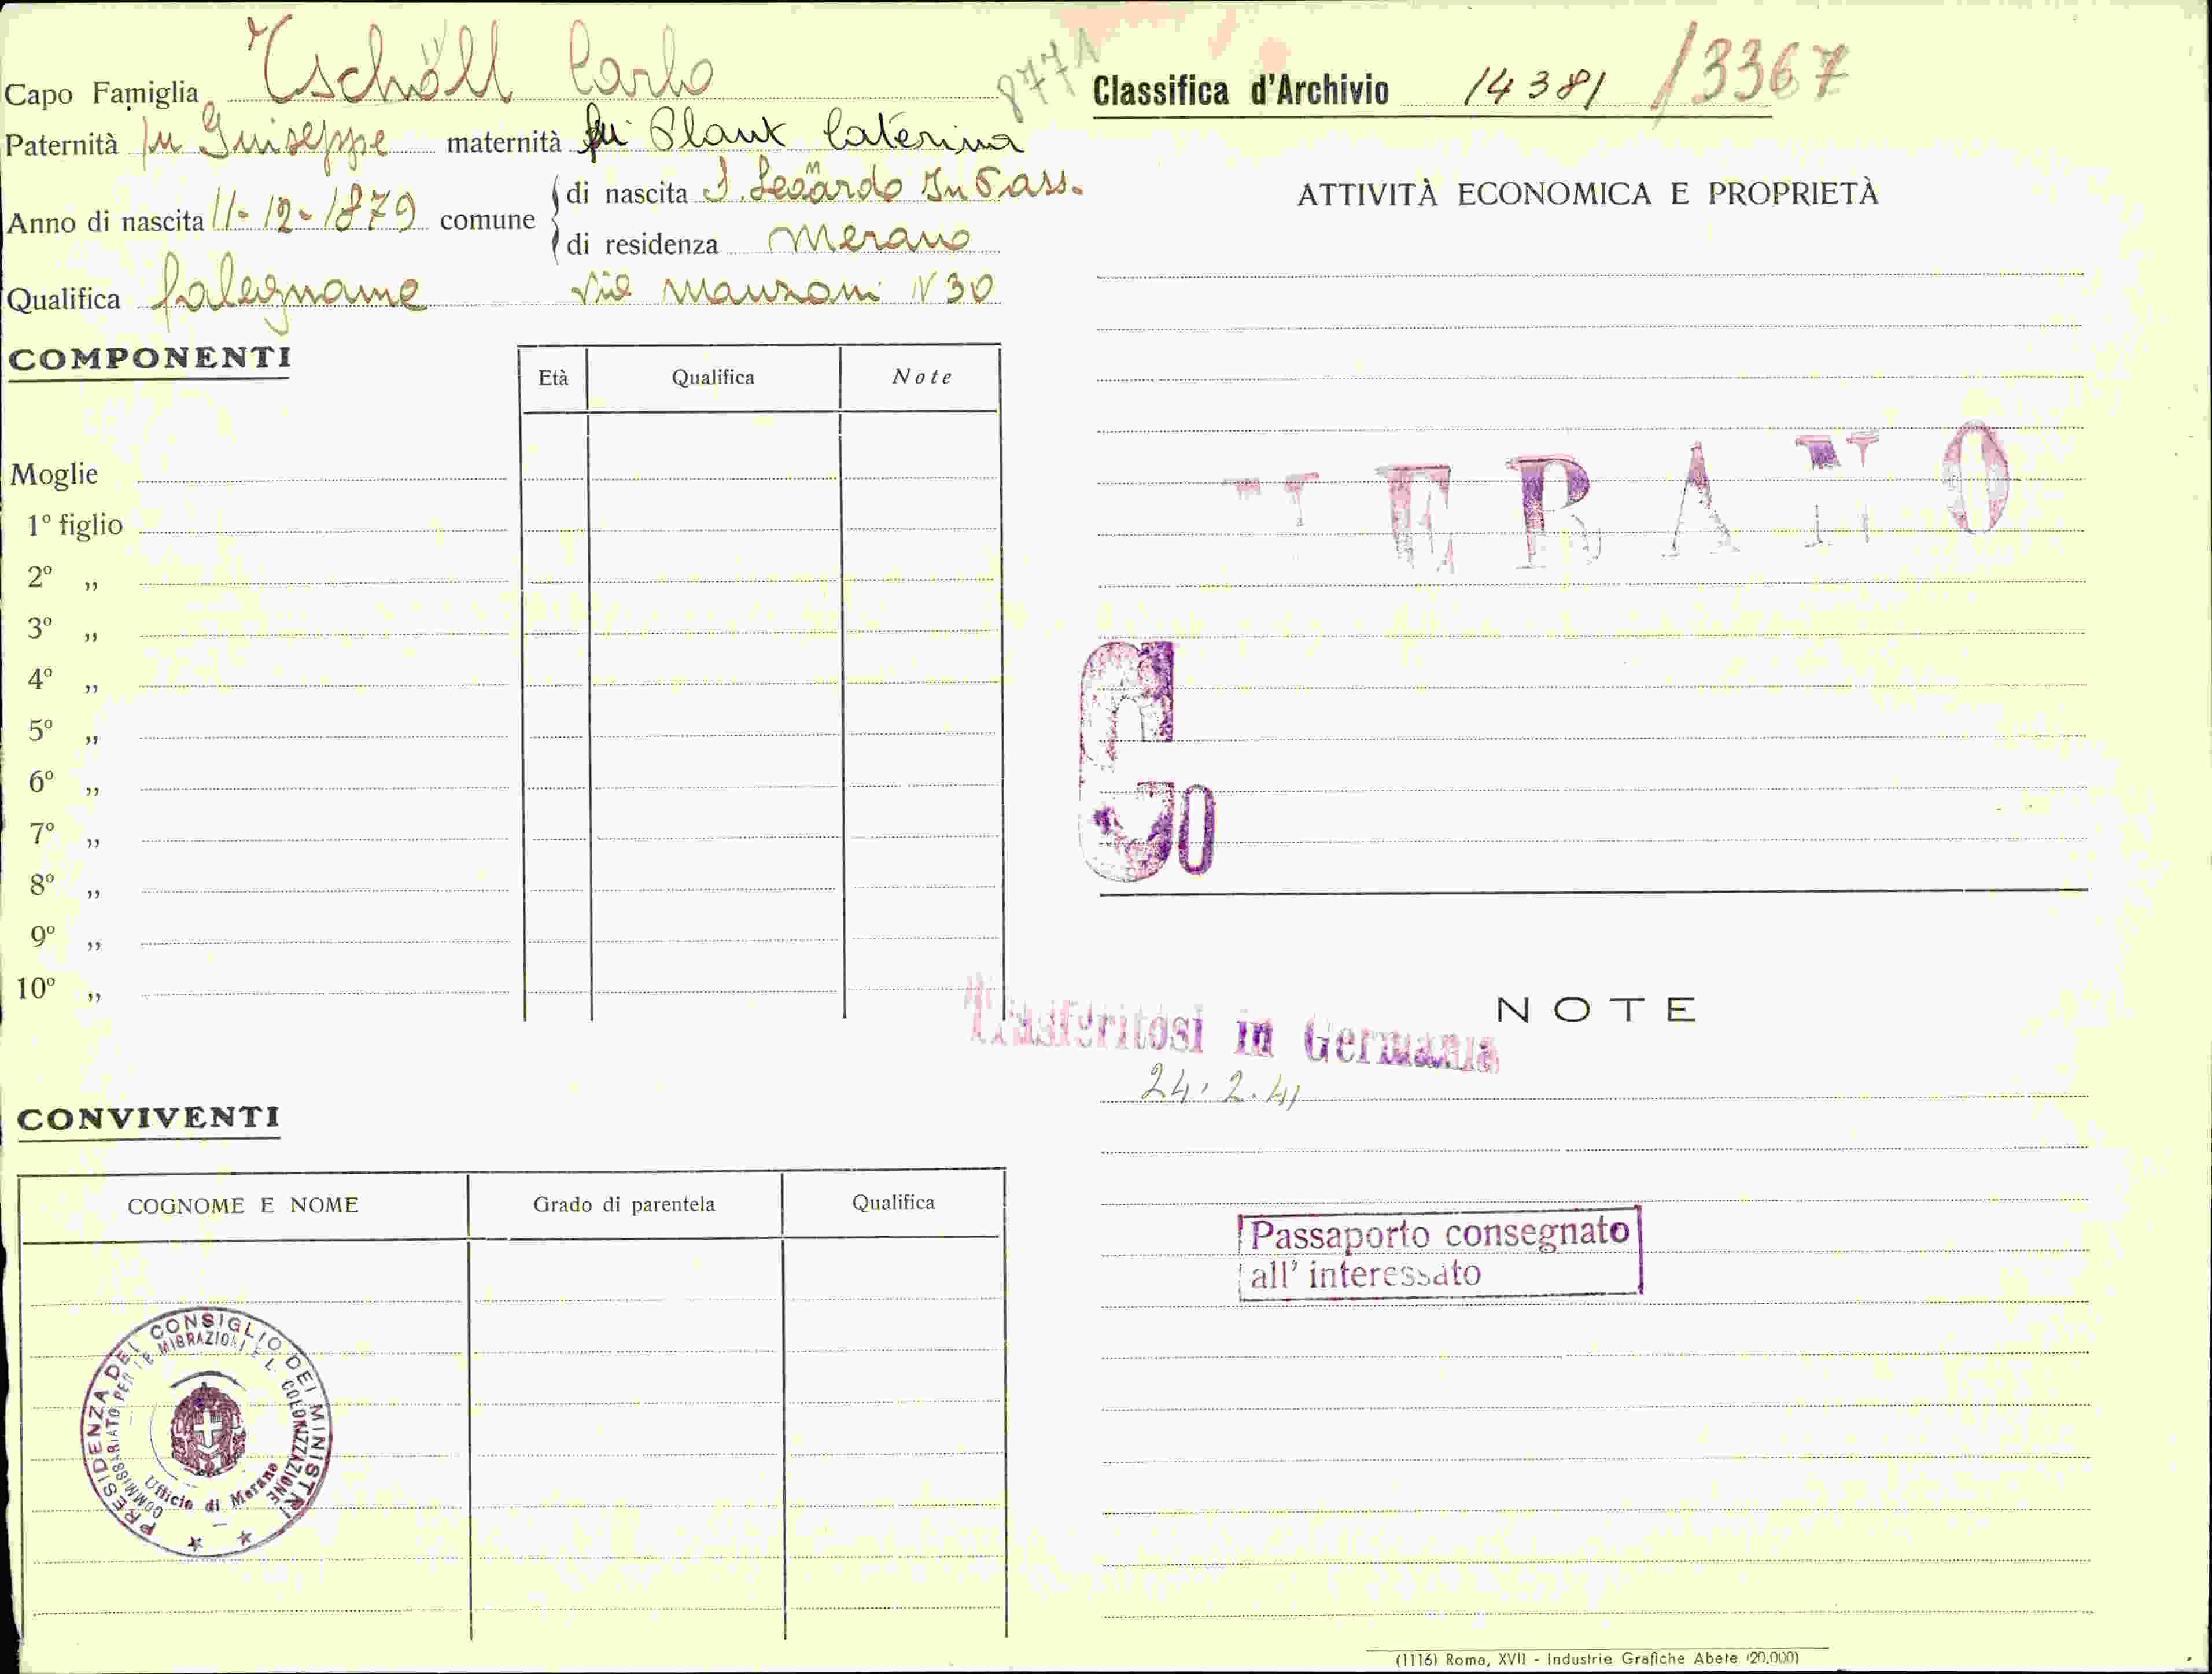 Capo Famiglia Tschöll Carlo
Paternità fu Guiseppe maternità fu Plank Caterina
Anno di nascita 11-12-1879 comune di nascita S. Leonardo In Pass.
di residenza Merano
Qualifica falegname via Manzoni N 30
COMPONENTI
Età Qualifica Note
Moglie
1º figlio
2º „
3º „
4º „
5º „
6º „
7º „
8º „
9º „
10º „
CONVIVENTI
COGNOME E NOME Grado di parentela Qualifica
PRESIDENZA DEL CONSIGLIO DEI MINISTRI
COMMISSARIATO PER LE MIGRAZIONI E L. COLONIZZAZIONE
Ufficio di Merano
8771
Classifica d'Archivio 14381 /3367
ATTIVITÀ ECONOMICA E PROPRIETÀ
MERANO
G0
NOTE
Trasferitosi in Germania
24.2.41
Passaporto consegnato
all' interessato
(1116) Roma, XVII - Industrie Grafiche Abete (20.000)